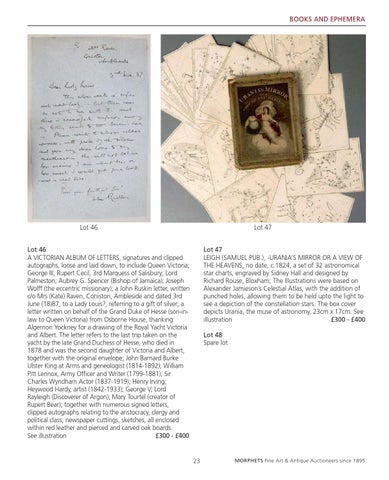 BOOKS AND EPHEMERA
URANIA'S MIRROR
Lot 46
Lot 47
Lot 46
A VICTORIAN ALBUM OF LETTERS, signatures and clipped
autographs, loose and laid down, to include Queen Victoria;
George III; Rupert Cecil, 3rd Marquess of Salisbury; Lord
Palmeston; Aubrey G. Spencer (Bishop of Jamaica); Joseph
Wolff (the eccentric missionary); a John Ruskin letter, written
c/o Mrs (Kate) Raven, Coniston, Ambleside and dated 3rd
June (18)87, to a Lady Louis?, referring to a gift of silver; a
letter written on behalf of the Grand Duke of Hesse (son-in-
law to Queen Victoria) from Osborne House, thanking
Algernon Yockney for a drawing of the Royal Yacht Victoria
and Albert. The letter refers to the last trip taken on the
yacht by the late Grand Duchess of Hesse, who died in
1878 and was the second daughter of Victoria and Albert,
together with the original envelope; John Barnard Burke
Ulster King at Arms and geneologist (1814-1892); William
Pitt Lennox, Army Officer and Writer (1799-1881); Sir
Charles Wyndham Actor (1837-1919); Henry Irving;
Heywood Hardy, artist (1842-1933); George V; Lord
Rayleigh (Discoverer of Argon); Mary Tourtel (creator of
Rupert Bear); together with numerous signed letters,
clipped autographs relating to the aristocracy, clergy and
political class; newspaper cuttings, sketches, all enclosed
within red leather and pierced and carved oak boards.
See illustration £300 - £400
Lot 47
LEIGH (SAMUEL PUB.), -URANIA'S MIRROR OR A VIEW OF
THE HEAVENS, no date, c.1824, a set of 32 astronomical
star charts, engraved by Sidney Hall and designed by
Richard Rouse, Bloxham; The Illustrations were based on
Alexander Jamieson's Celestial Atlas, with the addition of
punched holes, allowing them to be held upto the light to
see a depiction of the constellation stars. The box cover
depicts Urania, the muse of astronomy, 23cm x 17cm. See
illustration £300 - £400
Lot 48
Spare lot
23
MORPHETS Fine Art & Antique Auctioneers since 1895